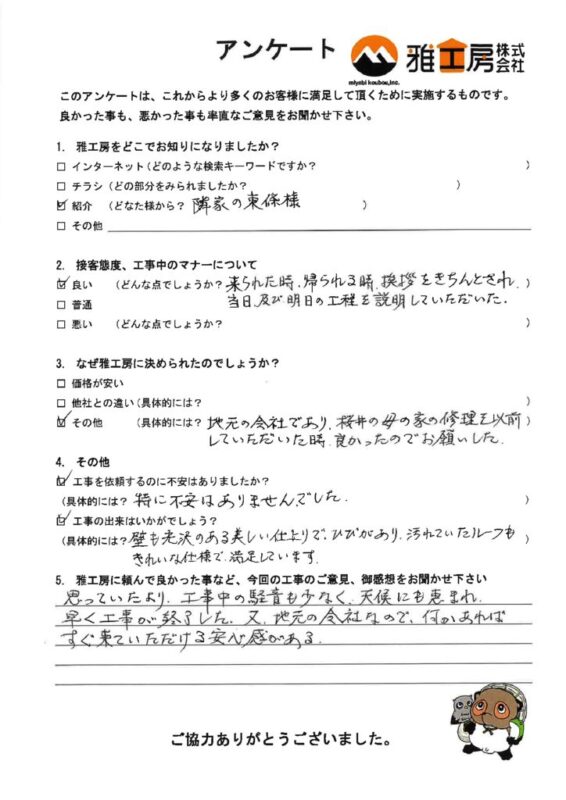 アンケート 雅工房株式会社
miyabi koubou,inc.
このアンケートは、これからより多くのお客様に満足して頂くために実施するものです。
良かった事も、悪かった事も率直なご意見をお聞かせ下さい。
1. 雅工房をどこでお知りになりましたか？
□ インターネット（どのような検索キーワードですか？ ）
□ チラシ（どの部分をみられましたか？ ）
☑ 紹介 （どなた様から？ 隣家の東條様 ）
□ その他
2. 接客態度、工事中のマナーについて
☑ 良い （どんな点でしょうか？ 来られた時、帰られる時、挨拶をきちんとされ、 ）
当日及び明日の工程を説明していただいた。
□ 普通
□ 悪い （どんな点でしょうか？ ）
3. なぜ雅工房に決められたのでしょうか？
□ 価格が安い
□ 他社との違い（具体的には？ ）
☑ その他 （具体的には？ 地元の会社であり、桜井の母の家の修理を以前 ）
していただいた時、良かったのでお願いした。
4. その他
☑ 工事を依頼するのに不安はありましたか？
（具体的には？ 特に不安はありませんでした。 ）
☑ 工事の出来はいかがでしょう？
（具体的には？ 壁も光沢のある美しい仕上りで、ひびがあり、汚れていたルーフも ）
きれいな仕様で、満足しています。
5. 雅工房に頼んで良かった事など、今回の工事のご意見、御感想をお聞かせ下さい
思っていたより、工事中の騒音も少なく、天候にも恵まれ、
早く工事が終了した。又、地元の会社なので、何かあれば
すぐ来ていただける安心感がある。
ご協力ありがとうございました。